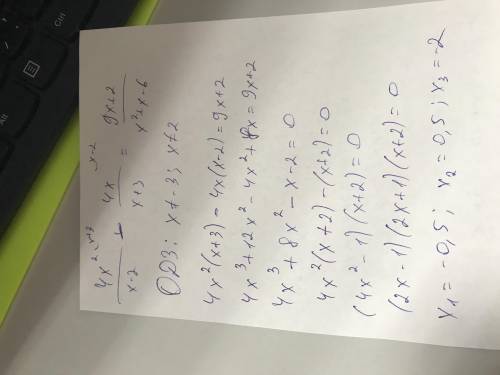 4x² \x+3 / x-2 - 4x \x-2 / x+3 = 9x+2 / x²+x-6
ОДЗ: x≠-3; x≠2
4x²(x+3) - 4x(x-2) = 9x+2
4x³+12x² - 4x²+8x = 9x+2
4x³+8x² - x - 2 = 0
4x²(x+2) - (x+2) = 0
(4x² - 1)(x+2) = 0
(2x-1)(2x+1)(x+2) = 0
x₁ = -0,5; x₂ = 0,5; x₃ = -2